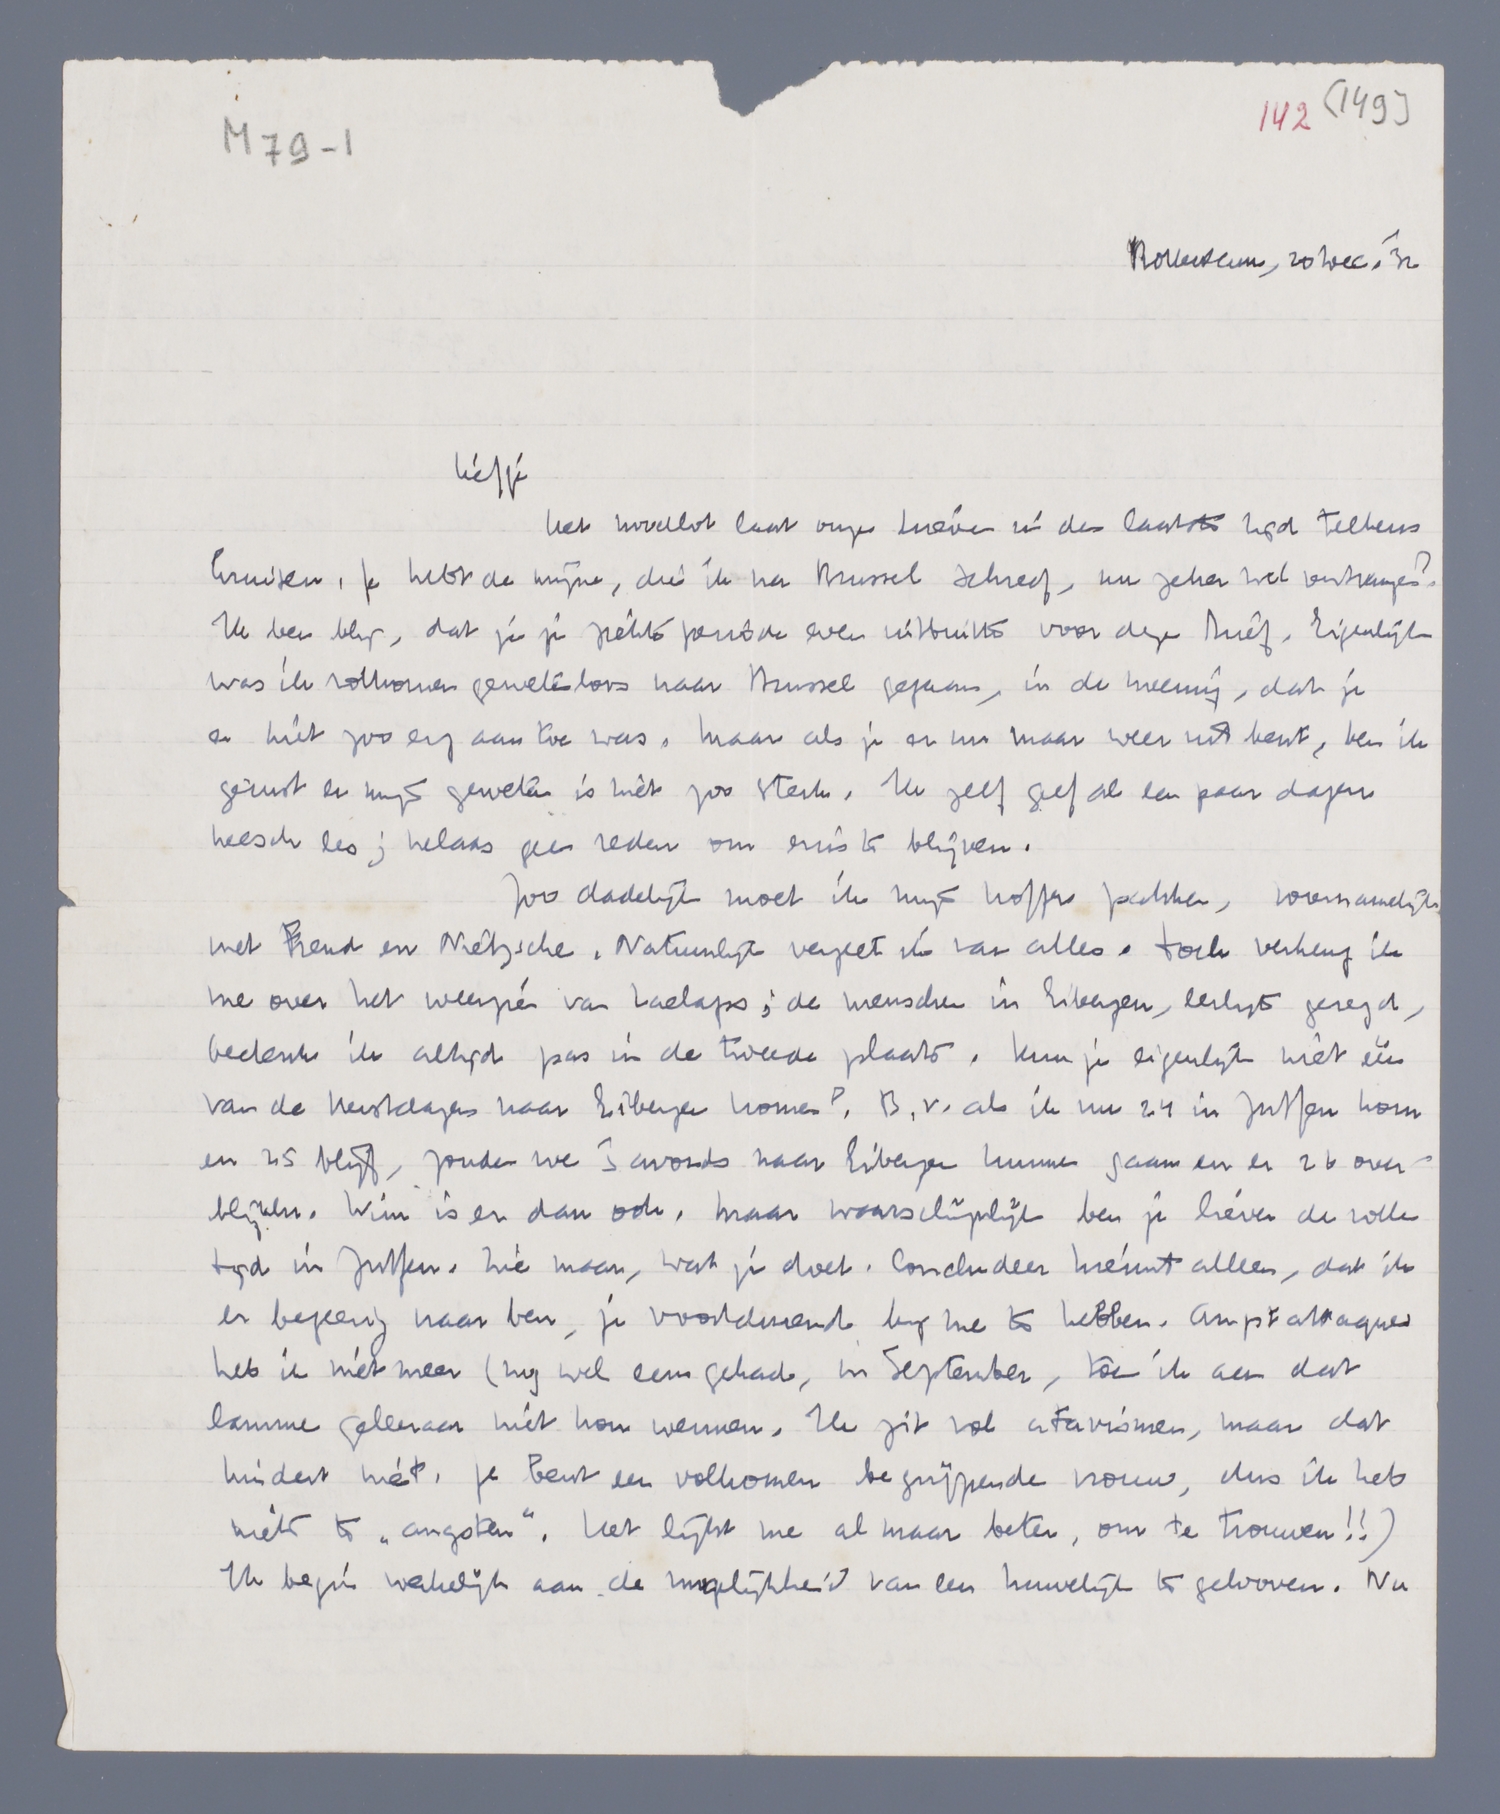 M 79-1
142 (149)
Rotterdam, 20 Dec. '32
Liefje
Het noodlot laat onze brieven in den laatsten tijd telkens
kruisen. Je hebt de mijne, die ik na Brussel schreef, nu zeker wel ontvangen?
Ik ben blij, dat je je ziekte zoodoende even uitbuitte voor deze brief. Eigenlijk
was ik volkomen gewetenloos naar Brussel gegaan, in de meening, dat je
er niet zoo erg aan toe was. Maar als je er nu maar weer uit bent, ben ik
gerust en mijn geweten is niet zoo sterk. Ik zelf geef al een paar dagen
heesch les; helaas geen reden om thuis te blijven.
Zoo dadelijk moet ik mijn koffer pakken, voornamelijk
met Freud en Nietzsche. Natuurlijk vergeet ik van alles. Toch verheug ik
me over het weerzien van Laelaps; de menschen in Eibergen, eerlijk gezegd,
bedenk ik altijd pas in de tweede plaats. Kun je eigenlijk niet één
van de Kerstdagen naar Eibergen komen? B.v. als ik nu 24 in Zutfen kom
en 25 blijf, zouden we 's avonds naar Eibergen kunnen gaan en er 26 over-
blijven. Wim is er dan ook. Maar waarschijnlijk ben je liever de volle
tijd in Zutfen. Zie maar, wat je doet. Concludeer hieruit alleen, dat ik
er begeerig naar ben, je voortdurend bij me te hebben. Angstattaques
heb ik niet meer (nog wel eens gehad, in September, toen ik aan dat
lamme geleeraar niet kon wennen. Ik zit vol atavismen, maar dat
hindert niet. Je bent een volkomen begrijpende vrouw, dus ik heb
niets te „angsten". Het lijkt me al maar beter, om te trouwen!!)
Ik begin werkelijk aan de mogelijkheid van een huwelijk te gelooven. Nu